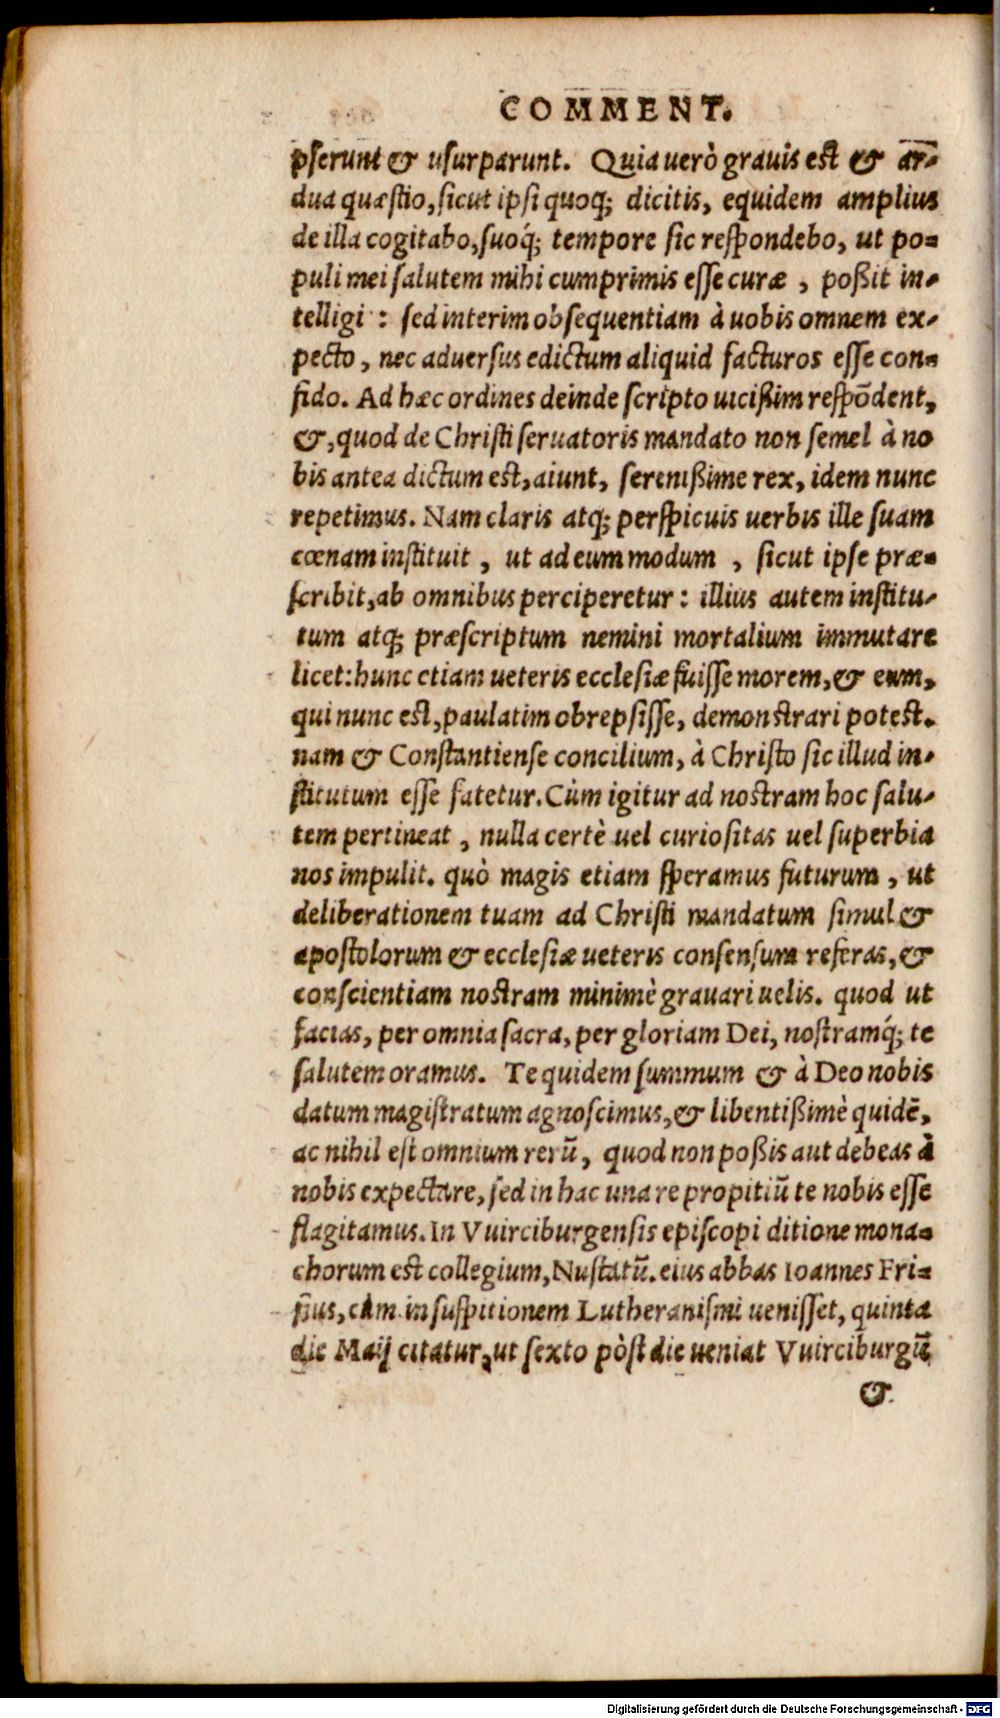 COMMENT.
pserunt & usurparunt. Quia uerò grauis est & ar-
dua quæstio, sicut ipsi quoq; dicitis, equidem amplius
de illa cogitabo, suoq́; tempore sic respondebo, ut po-
puli mei salutem mihi cumprimis esse curæ, poßit in-
telligi: sed interim obsequentiam à uobis omnem ex-
pecto, nec aduersus edictum aliquid facturos esse con-
fido. Ad hæc ordines deinde scripto uicißim respōdent,
&, quod de Christi seruatoris mandato non semel à no
bis antea dictum est, aiunt, serenißime rex, idem nunc
repetimus. Nam claris atq; perspicuis uerbis ille suam
cœnam instituit, ut ad eum modum, sicut ipse præ-
scribit, ab omnibus perciperetur: illius autem institu-
tum atq; præscriptum nemini mortalium immutare
licet: hunc etiam ueteris ecclesiæ fuisse morem, & eum,
qui nunc est, paulatim obrepsisse, demonstrari potest.
nam & Constantiense concilium, à Christo sic illud in-
stitutum esse fatetur. Cùm igitur ad nostram hoc salu-
tem pertineat, nulla certè uel curiositas uel superbia
nos impulit. quò magis etiam speramus futurum, ut
deliberationem tuam ad Christi mandatum simul &
apostolorum & ecclesiæ ueteris consensum referas, &
conscientiam nostram minimè grauari uelis. quod ut
facias, per omnia sacra, per gloriam Dei, nostramq́; te
salutem oramus. Te quidem summum & à Deo nobis
datum magistratum agnoscimus, & libentißimè quidē,
ac nihil est omnium rerū, quod non poßis aut debeas à
nobis expectare, sed in hac una re propitiū te nobis esse
flagitamus. In Vuirciburgensis episcopi ditione mona-
chorum est collegium, Nustatū. eius abbas Ioannes Fri-
sius, cùm in suspitionem Lutheranismi uenisset, quinta
die Maij citatur, ut sexto pòst die ueniat Vuirciburgū
&
Digitalisierung gefördert durch die Deutsche Forschungsgemeinschaft - DFG